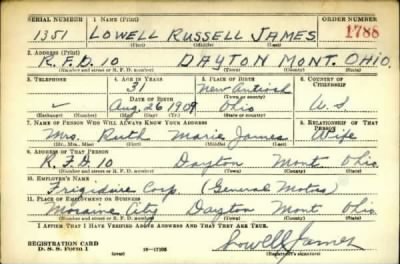 SERIAL NUMBER 1. NAME (Print) ORDER NUMBER
1351 LOWELL RUSSELL JAMES 1788
(First) (Middle) (Last)
2. ADDRESS (Print)
R.F.D. 10 DAYTON MONT. OHIO.
(Number and street or R. F. D. number) (Town) (County) (State)
3. TELEPHONE 4. AGE IN YEARS 5. PLACE OF BIRTH 6. COUNTRY OF CITIZENSHIP
31 New Antioch
DATE OF BIRTH
Aug. 26 1909 Ohio U.S.
(Exchange) (Number) (Mo.) (Day) (Yr.) (State or country)
7. NAME OF PERSON WHO WILL ALWAYS KNOW YOUR ADDRESS 8. RELATIONSHIP OF THAT PERSON
Mrs. Ruth Marie James Wife
(Mr., Mrs., Miss) (First) (Middle) (Last)
9. ADDRESS OF THAT PERSON
R.F.D. 10 Dayton Mont Ohio
(Number and street or R. F. D. number) (Town) (County) (State)
10. EMPLOYER'S NAME
Frigidaire Corp (General Motors)
11. PLACE OF EMPLOYMENT OR BUSINESS
Moraine City Dayton Mont Ohio.
(Number and street or R. F. D. number) (Town) (County) (State)
I AFFIRM THAT I HAVE VERIFIED ABOVE ANSWERS AND THAT THEY ARE TRUE.
REGISTRATION CARD
D. S. S. FORM 1 (over) Lowell James